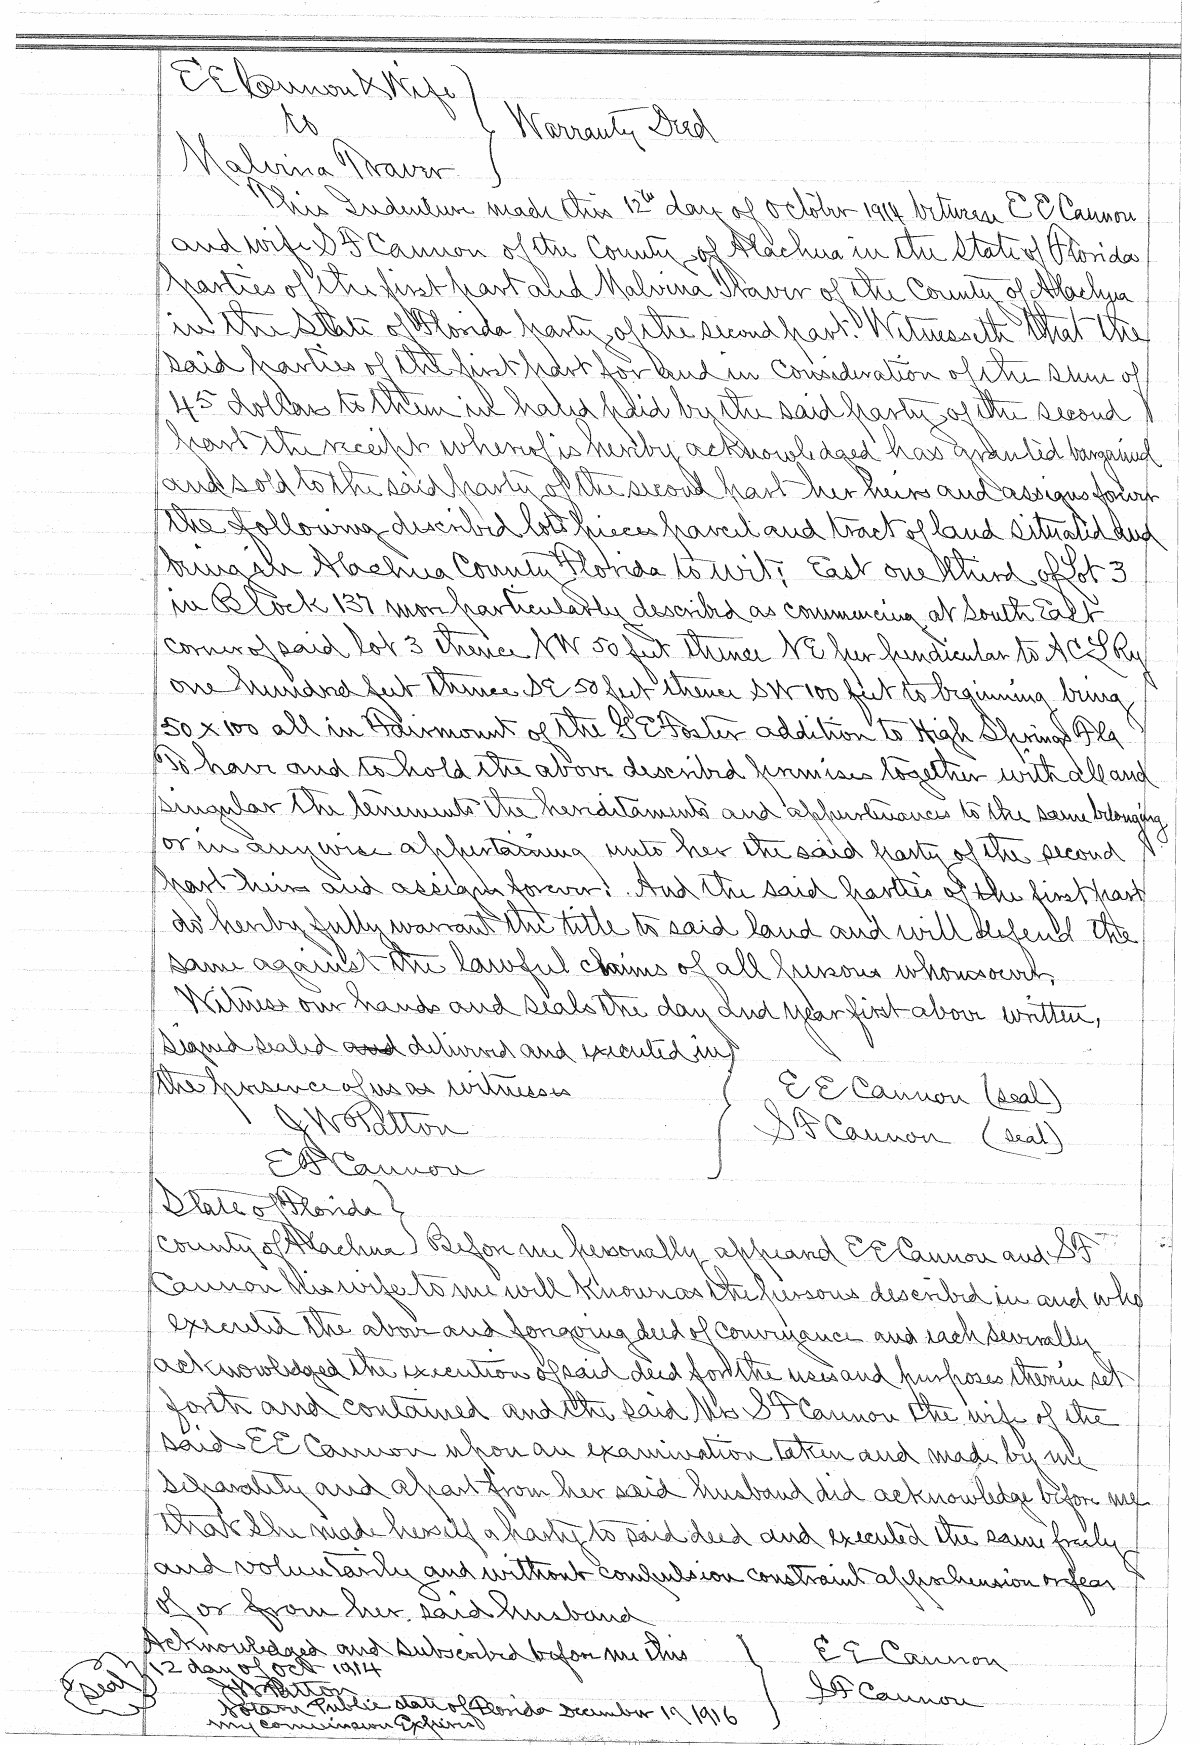 E E Cannon & Wife
to
Malvina Traver
Warranty Deed
This Indenture made this 12th day of October 1914 between E E Cannon
and wife S F Cannon of the County of Alachua in the State of Florida
parties of the first part and Malvina Traver of the County of Alachua
in the State of Florida party of the second part. Witnesseth that the
said parties of the first part for and in consideration of the sum of
45 dollars to them in hand paid by the said party of the second
part the receipt whereof is hereby acknowledged has granted bargained
and sold to the said party of the second part her heirs and assigns forever
the following described lots pieces parcel and tract of land situated and
being in Alachua County Florida to wit; East one third of Lot 3
in Block 137 more particularly described as commencing at South East
corner of said lot 3 thence NW 50 feet thence NE perpendicular to A C L Ry
one hundred feet thence SE 50 feet thence SW 100 feet to beginning being
50 x 100 all in Fairmount of the G E Foster addition to High Springs Fla
To have and to hold the above described premises together with all and
singular the tenements the hereditaments and appurtenances to the same belonging
or in anywise appertaining unto her the said party of the second
part heirs and assigns forever. And the said parties of the first part
do hereby fully warrant the title to said land and will defend the
same against the lawful claims of all persons whomsoever.
Witness our hands and seals the day and year first above written,
Signed sealed and delivered and executed in
the presence of us as witnesses
J W Patton
E F Cannon
E E Cannon (seal)
S F Cannon (seal)
State of Florida
County of Alachua Before me personally appeared E E Cannon and S F
Cannon his wife to me well known as the persons described in and who
executed the above and foregoing deed of conveyance and each severally
acknowledged the execution of said deed for the uses and purposes therein set
forth and contained and the said Mrs S F Cannon the wife of the
said E E Cannon upon an examination taken and made by me
separately and apart from her said husband did acknowledge before me
that she made herself a party to said deed and executed the same freely
and voluntarily and without compulsion constraint apprehension or fear
of or from her said husband
Acknowledged and subscribed before me this
12 day of Oct 1914
(Seal)
J W Patton
Notary Public State of Florida December 19 1916
My Commission Expires
E E Cannon
S F Cannon